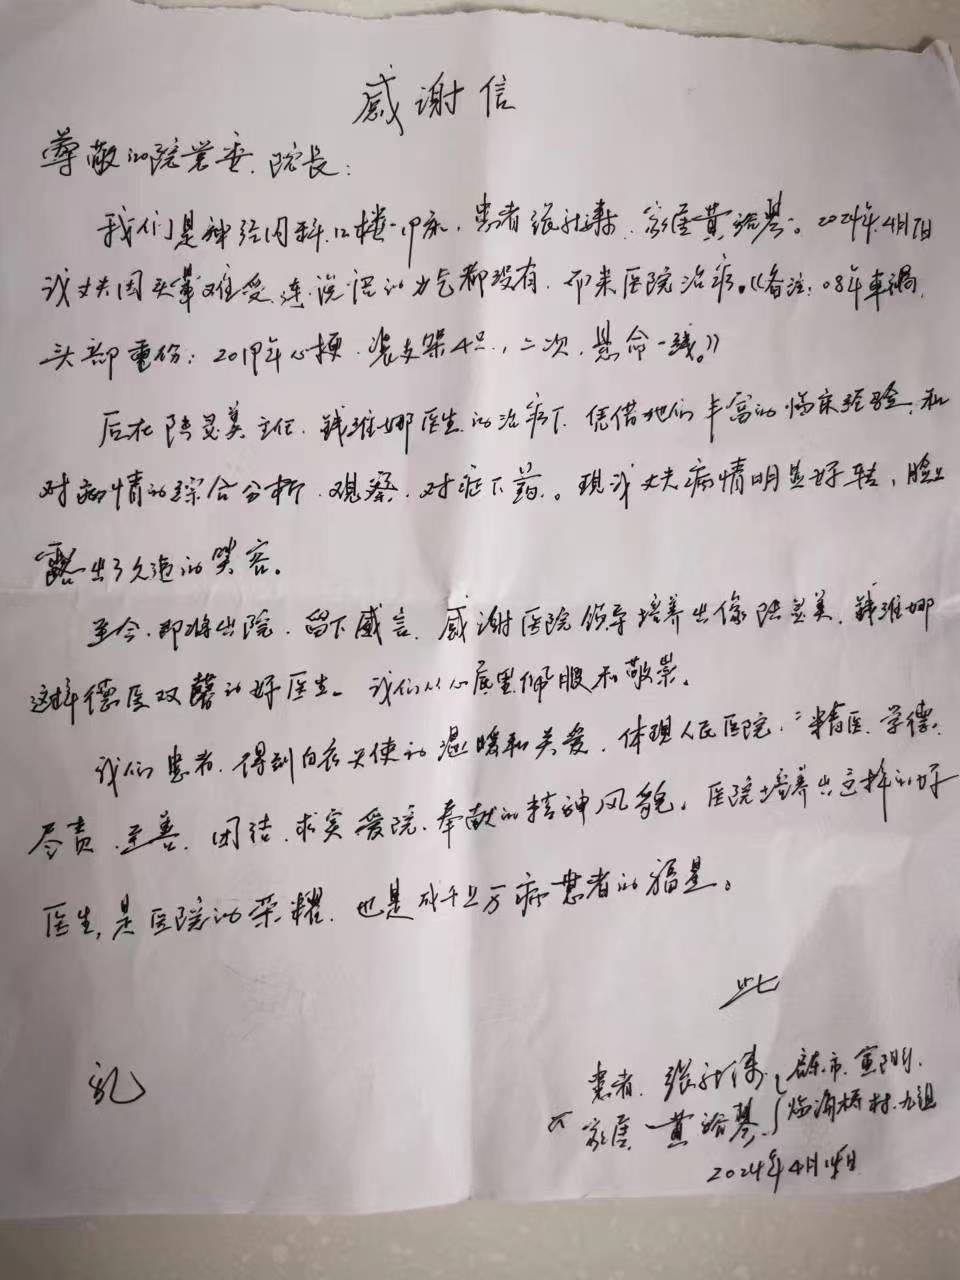 感谢信
尊敬的院党委、院长：
我们是神经内科12楼 床，患者张 家属黄 琴。2024年4月7日
我丈夫因头晕难受，连说话的力气都没有，即来医院治病。《备注：08年車祸，
头部重伤；2019年心梗、装支架4只，二次，悬命一线。》
后在陆 美主任、钱 娜医生的治疗下，凭借她们丰富的临床经验，和
对病情的综合分析、观察、对症下药。现我丈夫病情明显好转，脸上
露出了久违的笑容。
至今，即将出院，留下感言，感谢医院领导培养出像陆 美、钱 娜
这样德医双馨的好医生。我们从心底里佩服和敬崇。
我们患者，得到白衣天使的温暖和关爱，体现人民医院，"精医、学德、
尽责、至善、团结、求实、爱院、奉献的精神风貌。医院培养出这样的好
医生，是医院的荣耀，也是成千上万病患者的福星。
此
礼
患者：张 启东市、寅阳
家属：黄 琴 桥村、九组
2024年4月 日